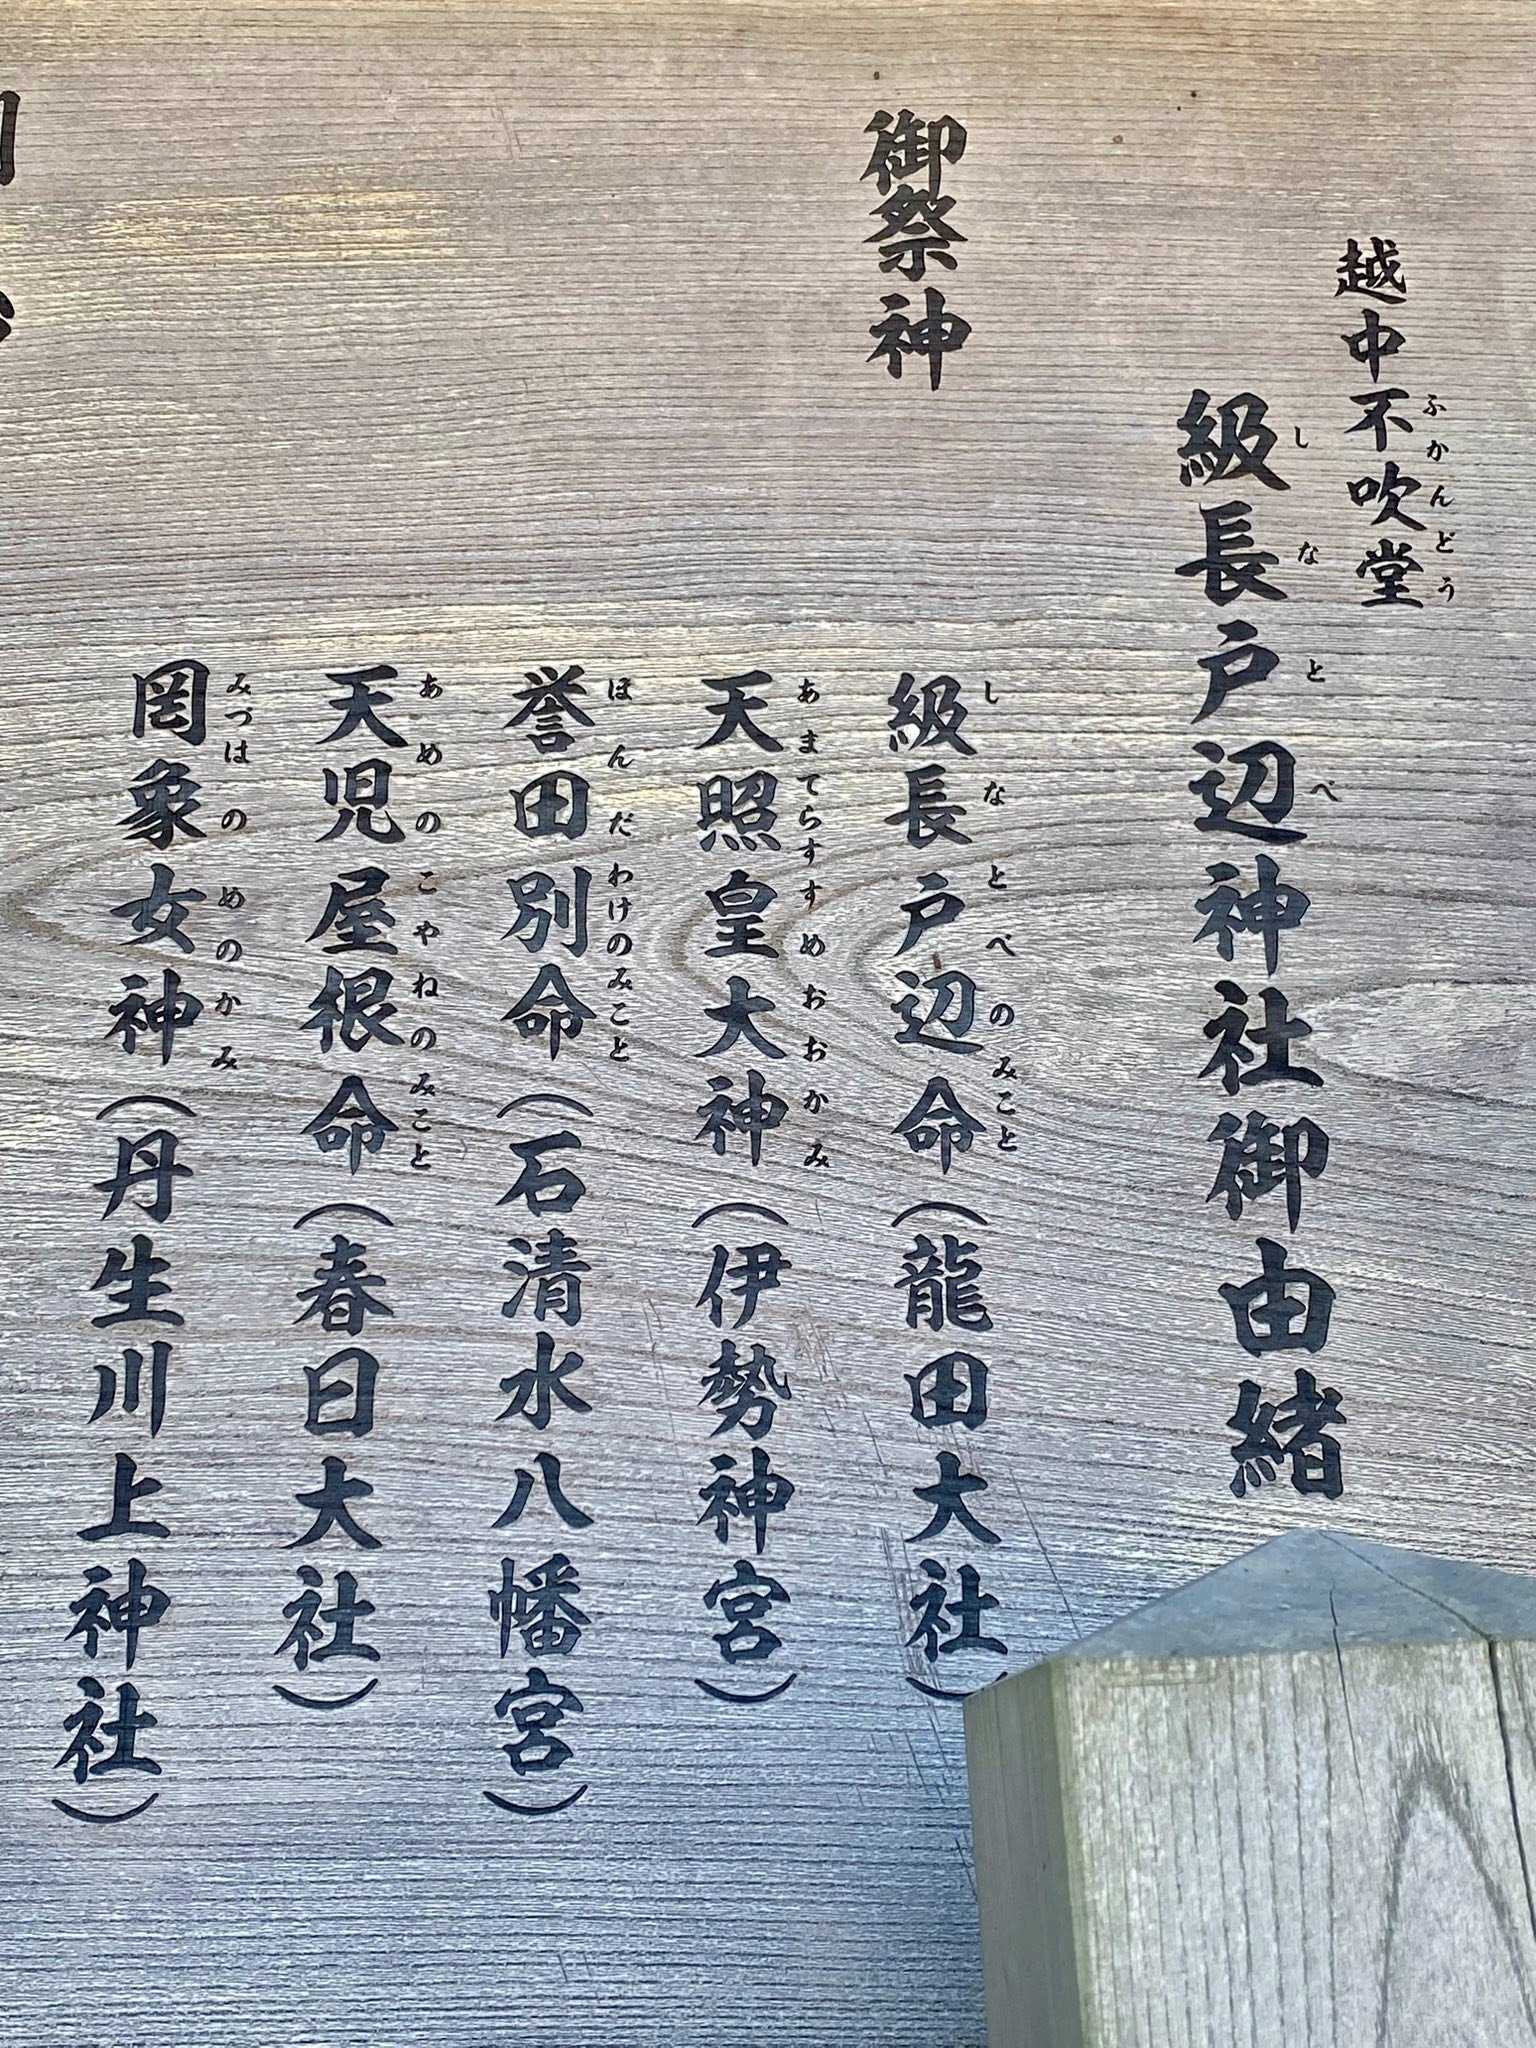 越中不吹堂
ふかんどう
級長戸辺神社御由緒
しなとべ
御祭神
級長戸辺命(龍田大社)
しなとべのみこと
天照皇大神(伊勢神宮)
あまてらすすめおおかみ
誉田別命(石清水八幡宮)
ほんだわけのみこと
天児屋根命(春日大社)
あめのこやねのみこと
罔象女神(丹生川上神社)
みづはのめのかみ